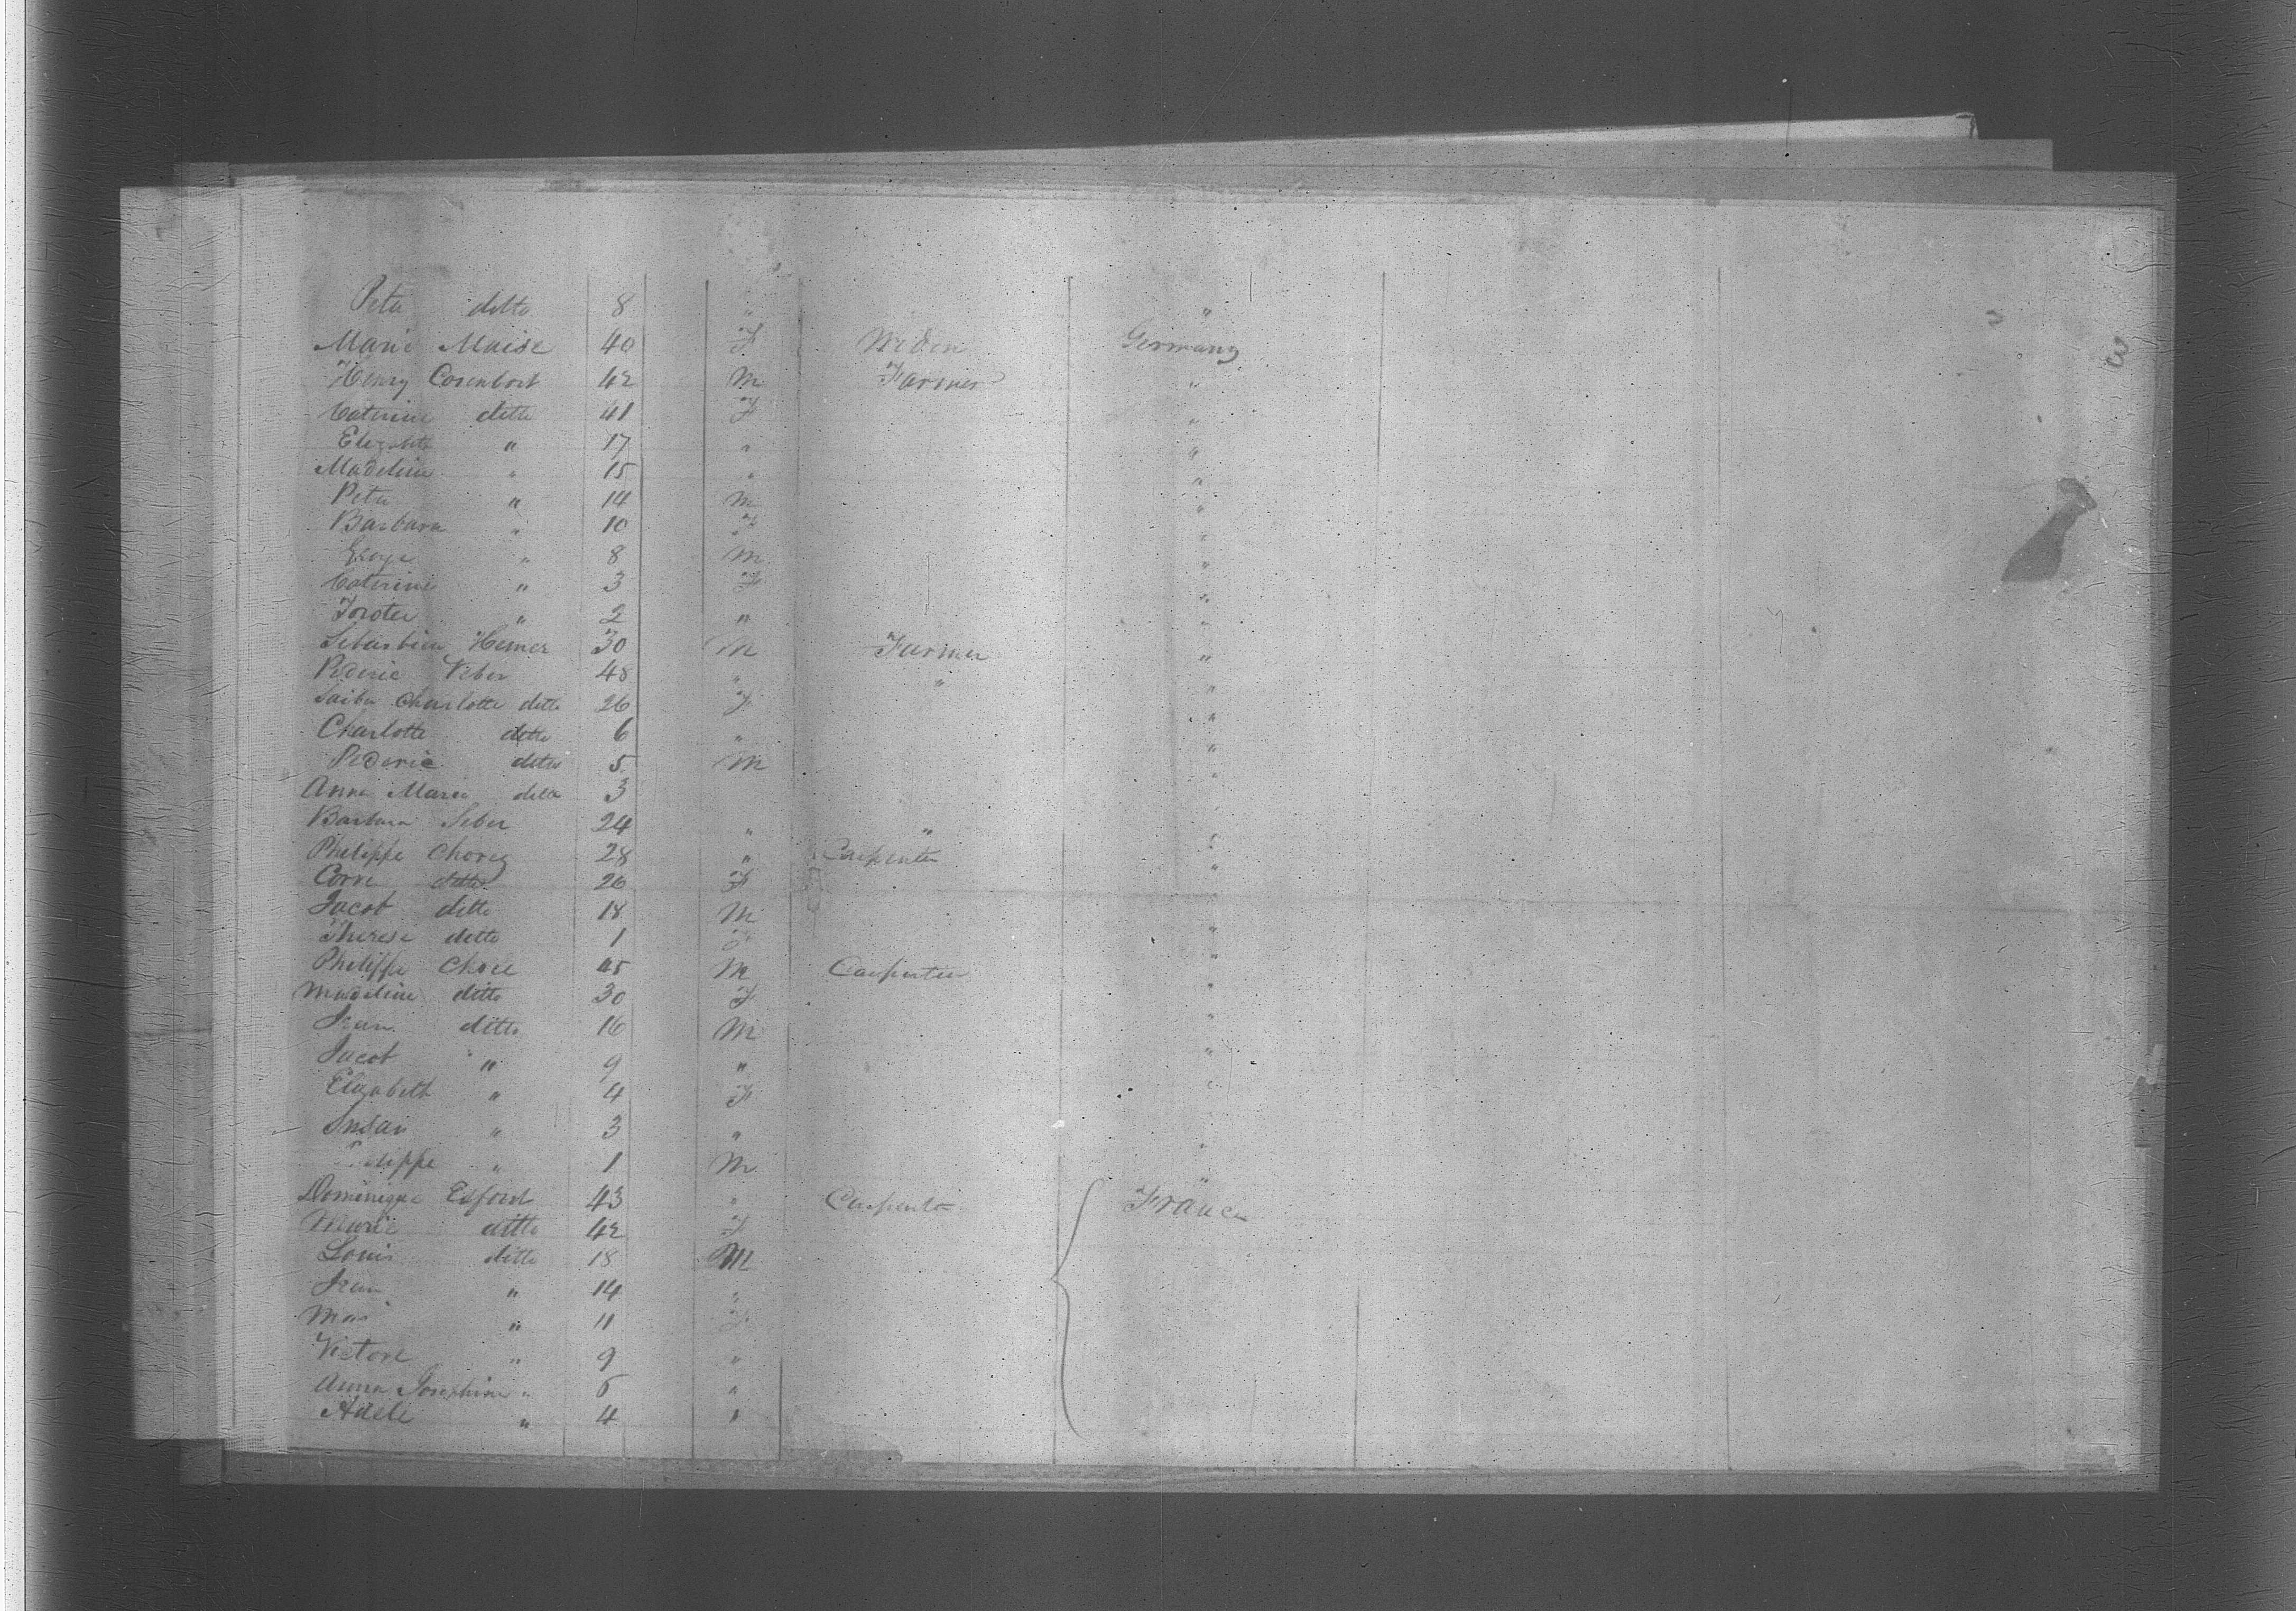 Peter ditto 8 " "
Marie Maise 40 F Widow Germany
Henry Cosenbort 42 M Farmer "
Caterine ditto 41 F "
Elizabeth " 17 " "
Madeline " 15 " "
Peter " 14 M "
Barbara " 10 F "
George " 8 M "
Caterine " 3 F "
" 2 " "
Sebastien Hemer 30 M Farmer "
Rideric Veber 48 " " "
Charlotte ditto 26 F "
Charlotte ditto 6 " "
Rideric ditto 5 M "
Anna Maria ditto 3 "
Barbara Seber 24 " " "
Philippe Chorey 28 " Carpenter "
Corre ditto 26 F "
Jacob ditto 18 M "
Therese ditto 1 F "
Philippe Chore 45 M Carpenter "
Madeline ditto 30 F "
Jean ditto 16 M "
Jacob " 9 " "
Elizabeth " 4 F "
Susan " 3 "
Philippe " 1 M "
Dominique Esford 43 " Carpenter France
Marie ditto 42 F
Louis ditto 18 M
Jean " 14 "
" 11 F
Victore " 9 "
Anna Josephine " 6 "
Adele " 4 "
3